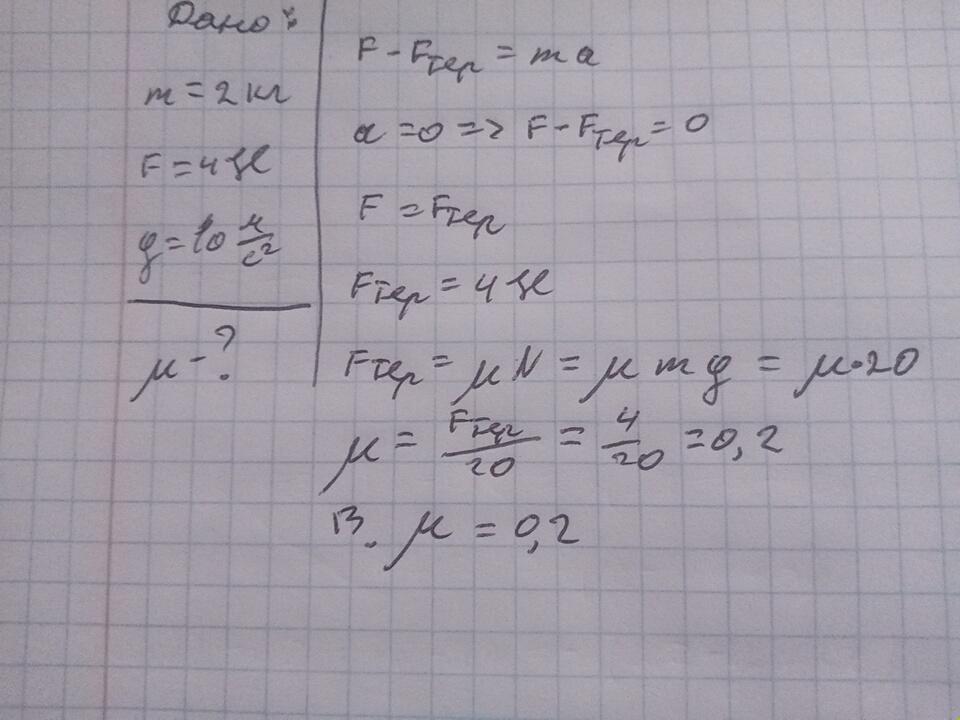 Дано:
m = 2 кг
F = 4 Н
g = 10 м/с²
μ - ?
F - Fтер = m a
a = 0 => F - Fтер = 0
F = Fтер
Fтер = 4 Н
Fтер = μN = μmg = μ·20
μ = Fтер/20 = 4/20 = 0,2
В. μ = 0,2